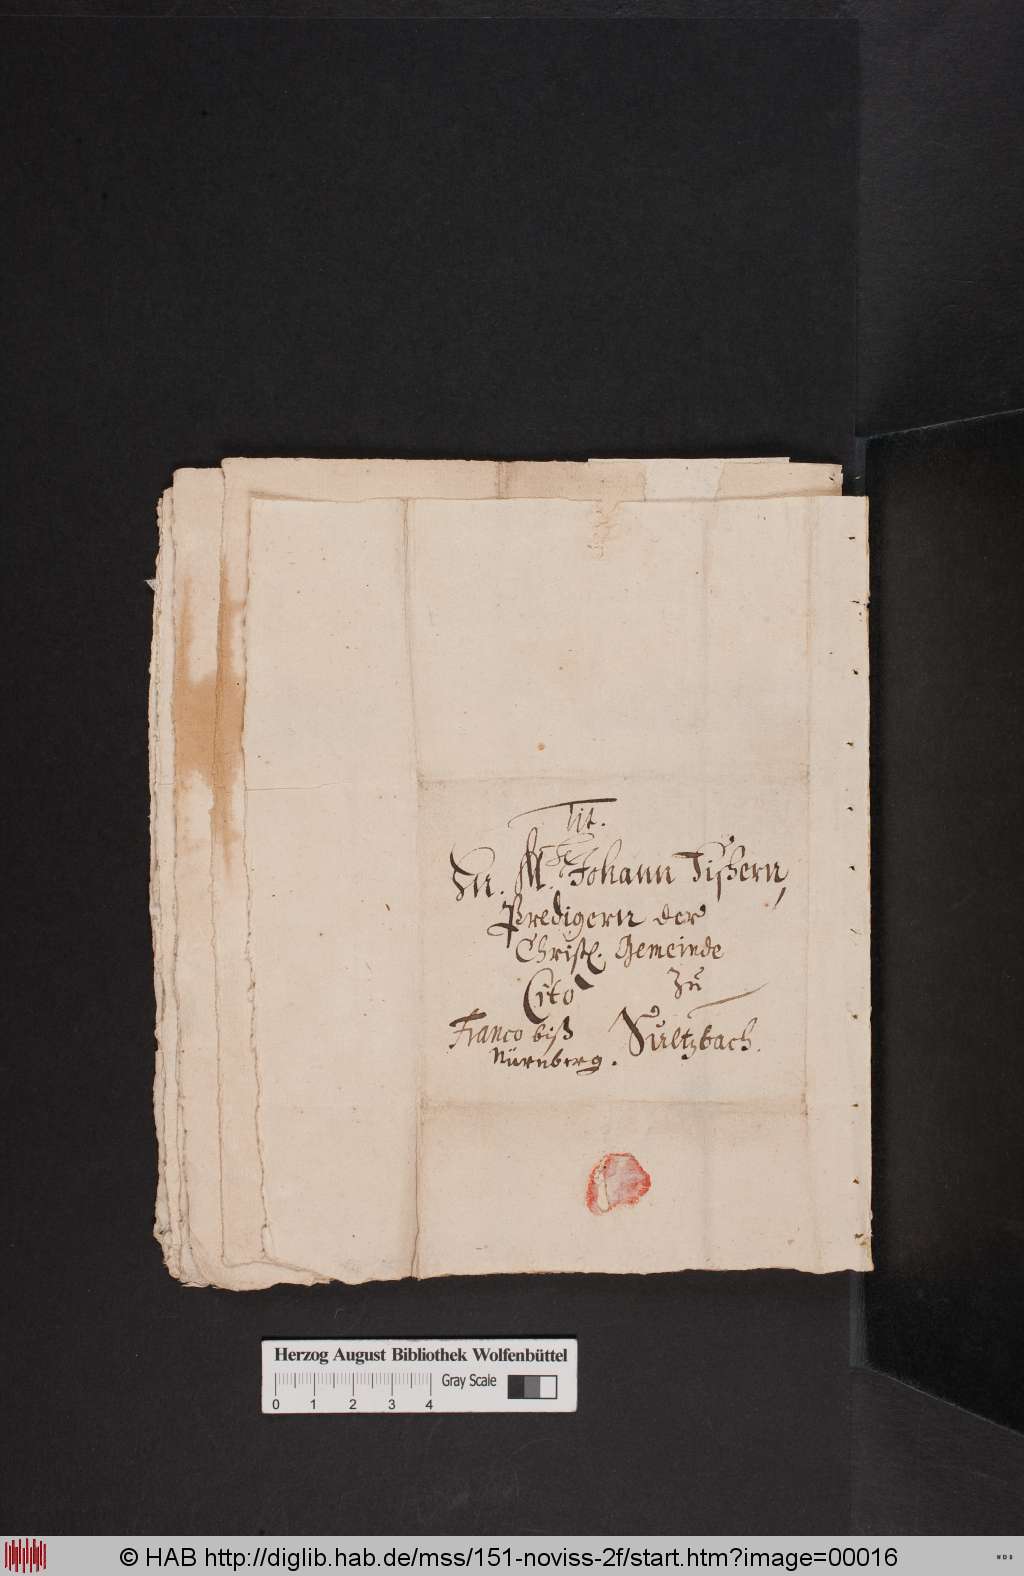 Tit.
Hn. M. Johann Fißern,
Predigern der
Christl. Gemeinde
Cito zu
Franco biß Sultzbach.
Nürnberg.
Herzog August Bibliothek Wolfenbüttel
Gray Scale
0 1 2 3 4
© HAB http://diglib.hab.de/mss/151-noviss-2f/start.htm?image=00016